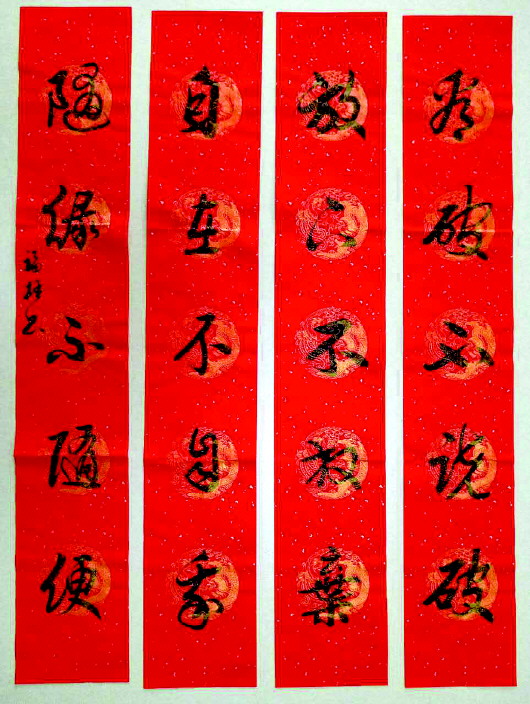 看破不说破
放下不放棄
自在不自我
随缘不随便